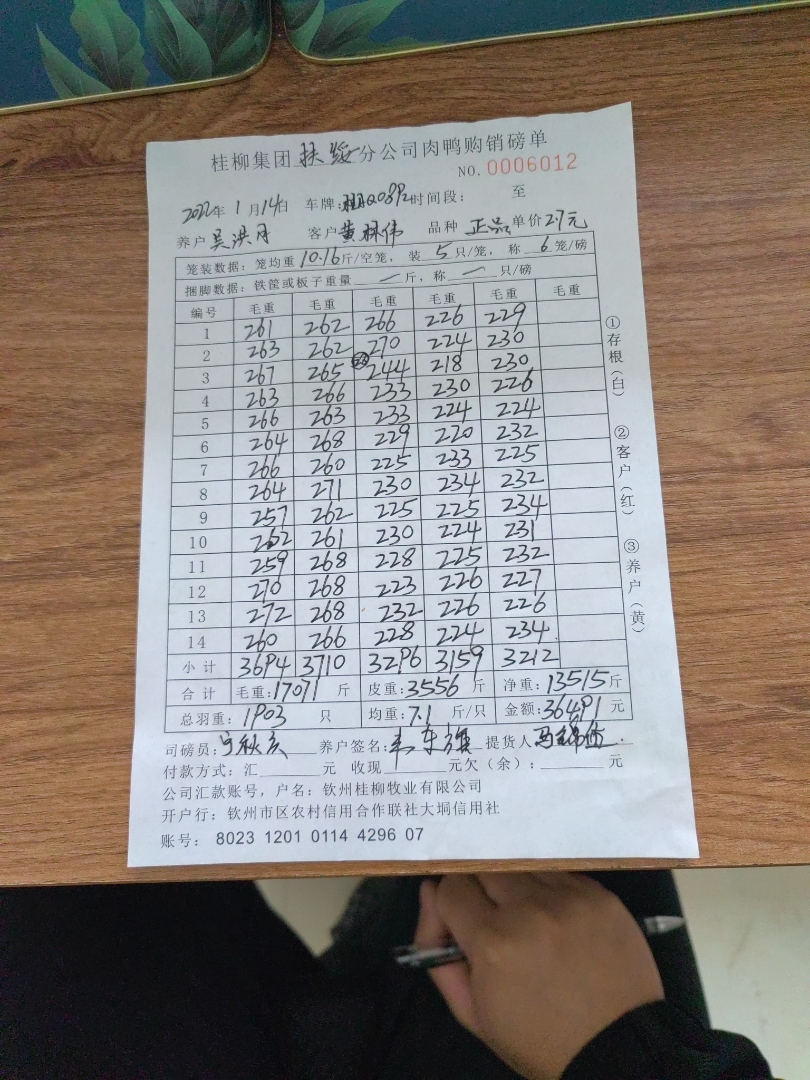 桂柳集团 扶绥 分公司肉鸭购销磅单
NO. 0006012
2022年 1月14日 车牌: 时间段: 至
养户 吴洪月 客户 黄 伟 品种 正品 单价 2.7元
笼装数据: 笼均重 10.16 斤/空笼, 装 5 只/笼, 称 6 笼/磅
捆脚数据: 铁筐或板子重量 — 斤, 称 — 只/磅
编号 毛重 毛重 毛重 毛重 毛重 毛重
1 261 262 266 226 229
2 263 262 270 224 230
3 267 265 244 218 230
4 263 266 233 230 226
5 266 263 233 224 224
6 264 268 229 220 232
7 266 260 225 233 225
8 264 271 230 234 232
9 257 262 225 225 234
10 262 261 230 224 231
11 259 268 228 225 232
12 270 268 223 226 227
13 272 268 232 226 226
14 260 266 228 224 234
小计 3694 3710 3296 3159 3212
合计 毛重: 17071 斤 皮重: 3556 斤 净重: 13515 斤
总羽重: 1903 只 均重: 7.1 斤/只 金额: 36491 元
司磅员: 养户签名: 提货人
付款方式: 汇 元 收现 元 欠(余): 元
公司汇款账号, 户名: 钦州桂柳牧业有限公司
开户行: 钦州市区农村信用合作联社大垌信用社
账号: 8023 1201 0114 4296 07
①存根(白)
②客户(红)
③养户(黄)